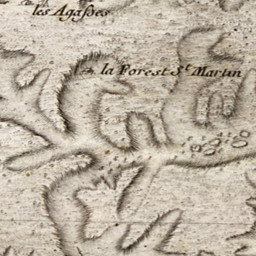 les Agasses
la Forest St. Martin